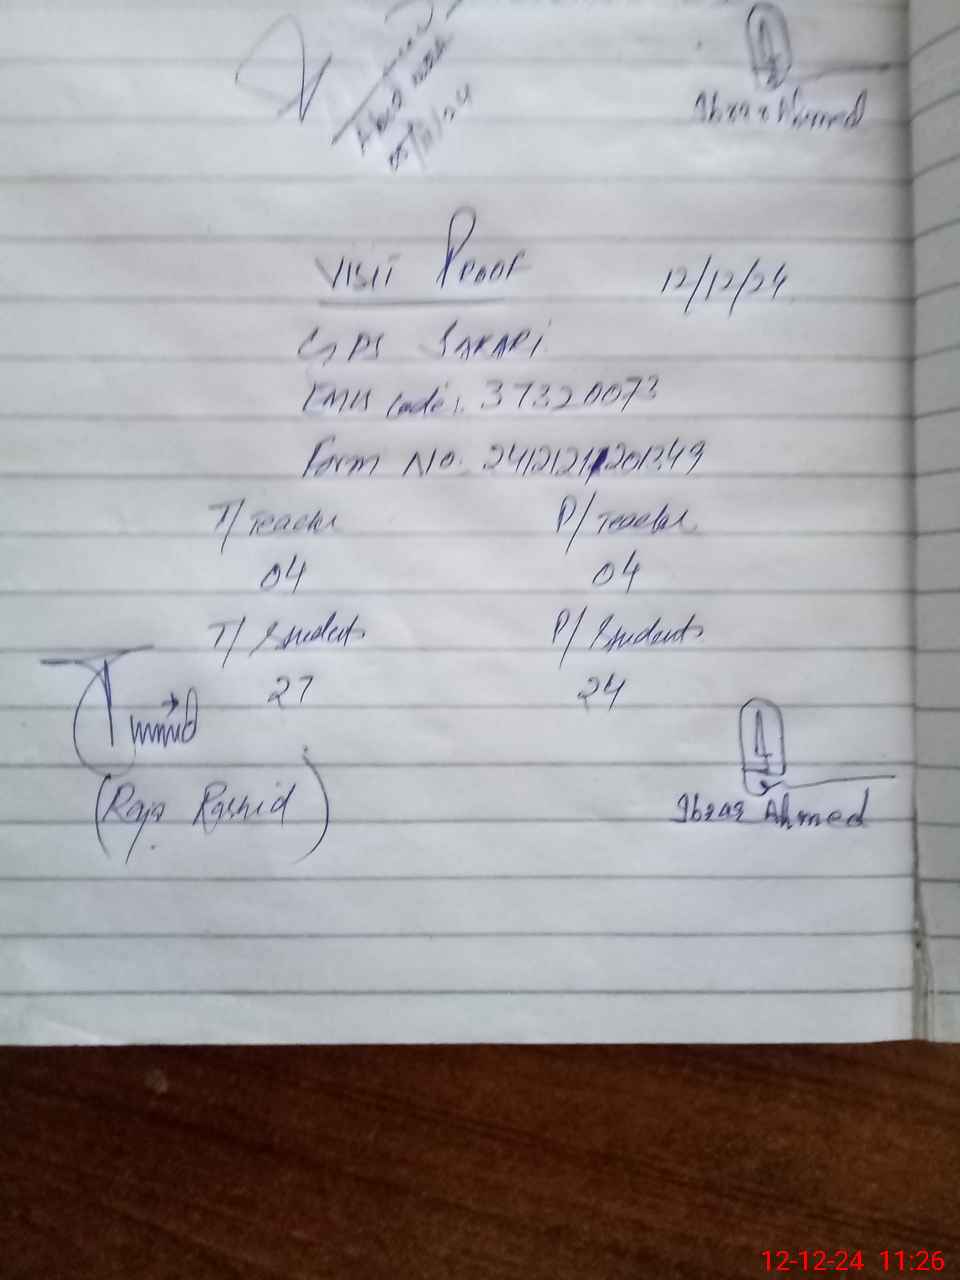 Ibrar Ahmed
VISIT PROOF 12/12/24
GPS SAKARI
EMIS Code: 37320073
Form No. 24121211201349
T/Teacher P/Teacher
04 04
T/Students P/Students
27 24
(Raja Rashid)
Ibrar Ahmed
12-12-24 11:26